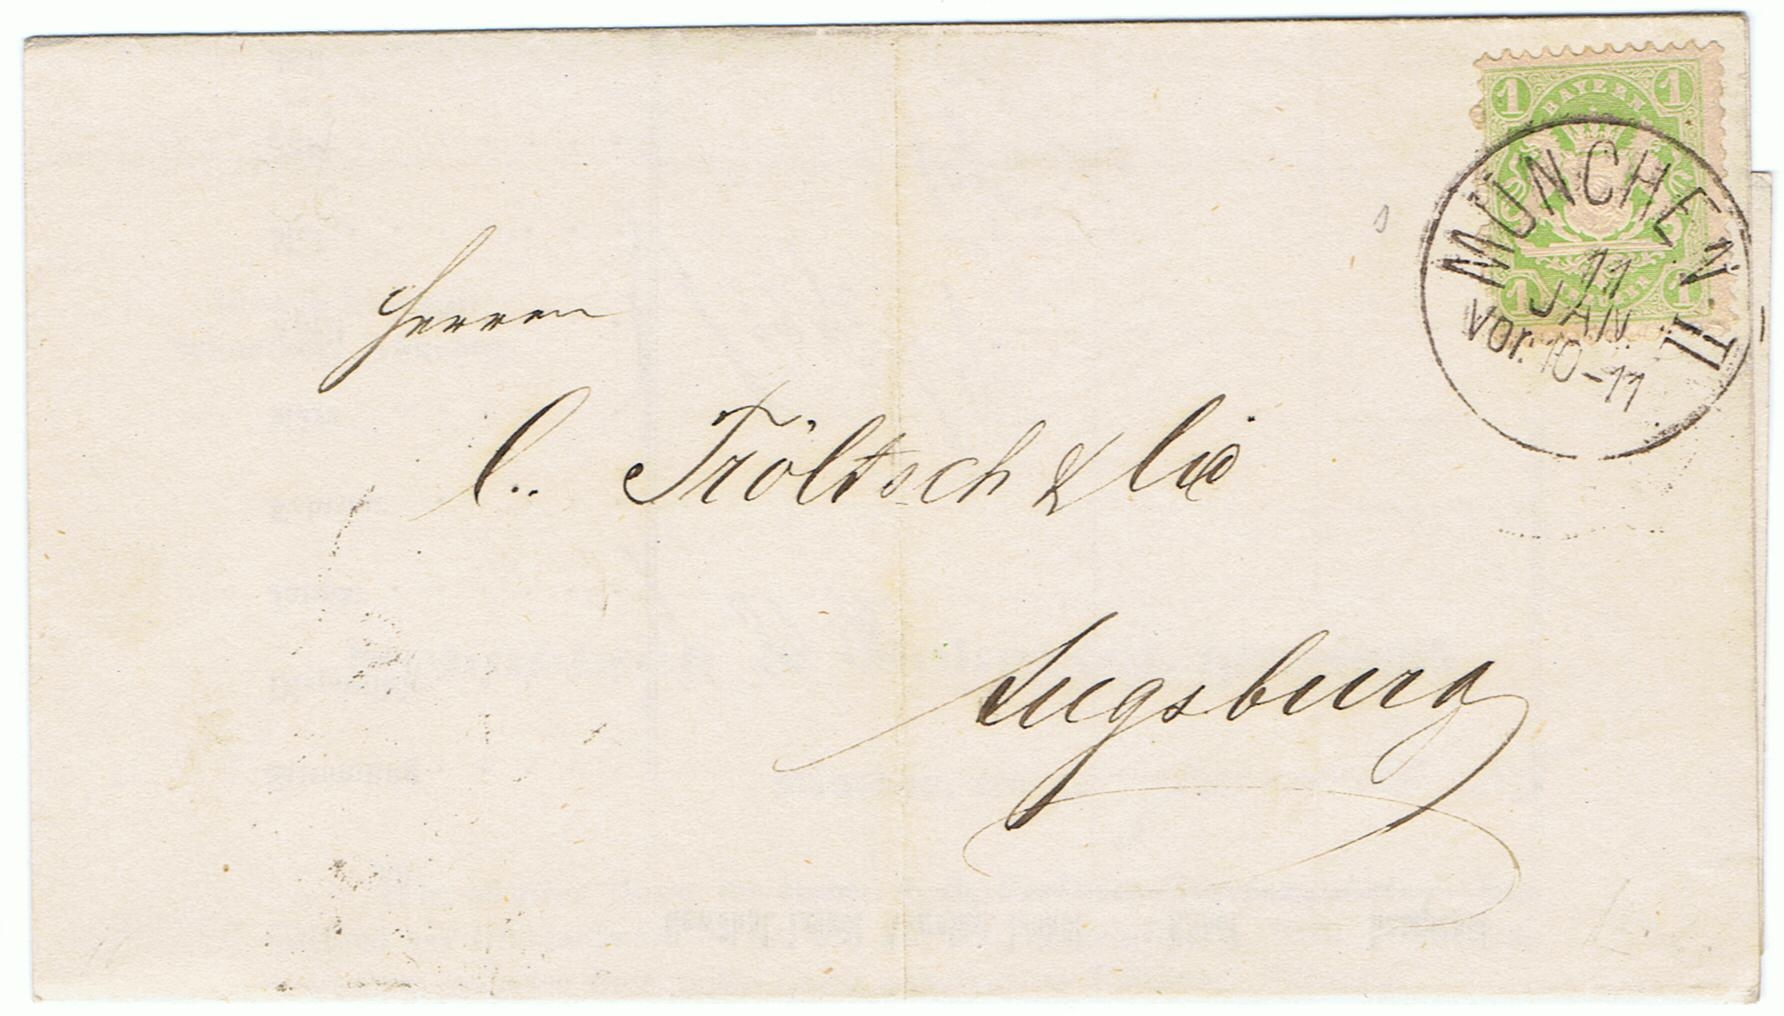 1 BAYERN 1
MÜNCHEN. II
11
JAN.
Vor. 10-11
1 1
Herren
C. Tröltsch & Cie
Augsburg